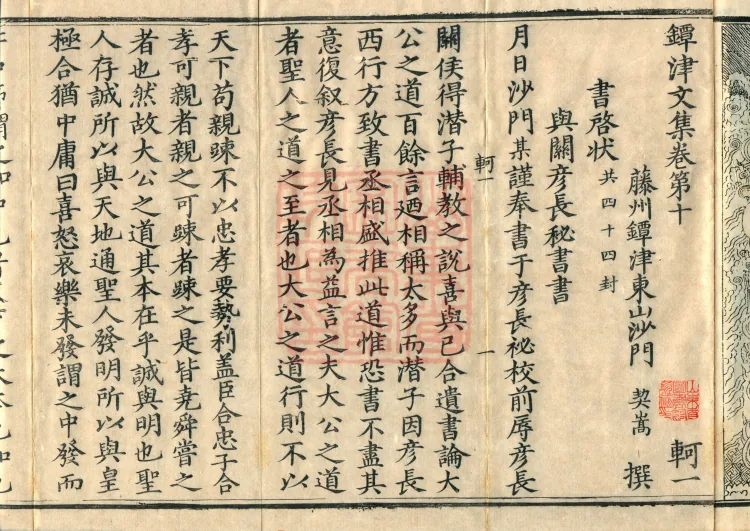 鐔津文集卷第十
軻一
藤州鐔津東山沙門 契嵩 撰
書啓状 共四十四封
與關彦長秘書書
月日沙門某謹奉書于彦長袐校前辱彦長
軻一 一
關侯得潛子輔教之說喜與已合遺書論大
公之道百餘言廼相稱太多而潛子因彦長
西行方致書丞相盛推此道惟恐書不盡其
意復叙彦長見丞相為益言之夫大公之道
者聖人之道之至者也大公之道行則不以
天下苟親踈不以忠孝要勢利盖臣合忠子合
孝可親者親之可踈者踈之是皆堯舜嘗之
者也然故大公之道其本在乎誠與明也聖
人存誠所以與天地通聖人發明所以與皇
極合猶中庸曰喜怒哀樂未發謂之中發而